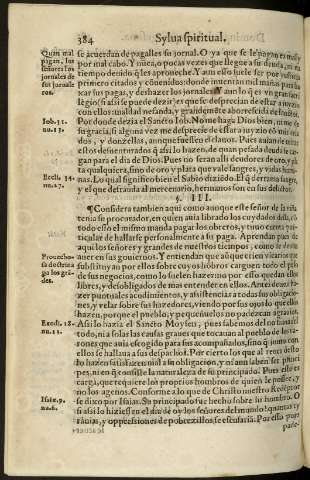 384 Sylua spiritual.
Quan mal
pagan, los
señores los
jornales de
sus jornale
ros.
se acuerdan de pagalles su jornal. O ya que se le pagan es mal y
por mal cabo. Y nũca, o pocas vezes que llegue a su deuda, ni
tiempo deuido q̃ les aproueche. Y aun esso suele ser por justicia
primero citados y cõuenidos: donde intentan mil manas
xar sus pagas, y deshazer los jornales. Y aun lo q̃ es vn gran
legio (si assi se puede dezir) es que se desprecian de estar a juyzio
con ellos mal ad nefanda, y grandemente aborrecida de
Iob. 31.
nu. 13.
Por donde dezia el Sancto Iob. No me haga Dios bien, ni me dè
su gracia, si alguna vez me desprecie de estar a juyzio cõ mis cria
dos, y donzellas, aunque fuessen esclauos. Pues ay
estos desuenturados q̃ assi lo hazen, de quan pesada deuda se car
gan para el dia de Dios. Pues no seran alli deudores de oro, y pla
ta qualquiera, sino de oro y plata que vale sangres, y vidas huma
Ecclis. 34.
nu. 27.
nas. Lo qual significo bien el Sabio diziẽdo. El q̃ derrama sangre,
y el que defrauda al mercenario, hermanos son en sus delictos.
§. III.
¶ Considera tambien aqui como aunque este señor de la viña
tenia se procurador, en quien auia librado los cuydados della, cõ
todo esso el mismo manda pagar los obreros, y tuuo cuenta par
ticular de hallarse personalmente a su paga. Aprendan pues de
aqui los señores y grandes de nuestros tiempos, como se deuen
Prouecho
sa doctrina
pa los grã
des.
auer en sus gouiernos. Y entiendan que aunque crien vicarios que
substituyan por ellos sobre cuyos ombros carguen todo el peso
de sus negocios, como lo suelen hazer no por esso quedan ellos
libres, y desobligados de mas entender en ellos. Antes deuen ha
zer puntuales acodimientos, y assistencias a todas sus obligacio
nes, y velar sobre sus hazedores, viendo por sus ojos lo que ellos
hazen, porque el pueblo, y pequeñuelos no padezcan agrauios.
Exodi. 18.
nu. 22.
Assi lo hazia el Sancto Moysen, pues sabemos del no hauia
todo, ni a solas las causas graues que tocauan al pueblo de los va
rones que auia escogido para sus acompañados, sino q̃ junto con
ellos se hallaua a sus despachos. Por cierto los que al reues desto
lo hazen satisfazen mal a su obligacion, y ni aun saben ser princi
pes, ni en q̃ consiste la naturaleza de su principado. Pues este es
carga, que requiere los propios hombros de quien le possee, y
no los agenos. Conforme a lo que de Christo nuestro Redẽptor
Isaiæ. 9.
nu. 6.
se dixo por Isaias. Su principado fue hecho sobre su hombro. O
si assi lo hiziessen el dia de oy los señores del mundo! quantas ty
ranias, y oppressiones de pobrezillos, se escusaria. Por esso pues
pade-